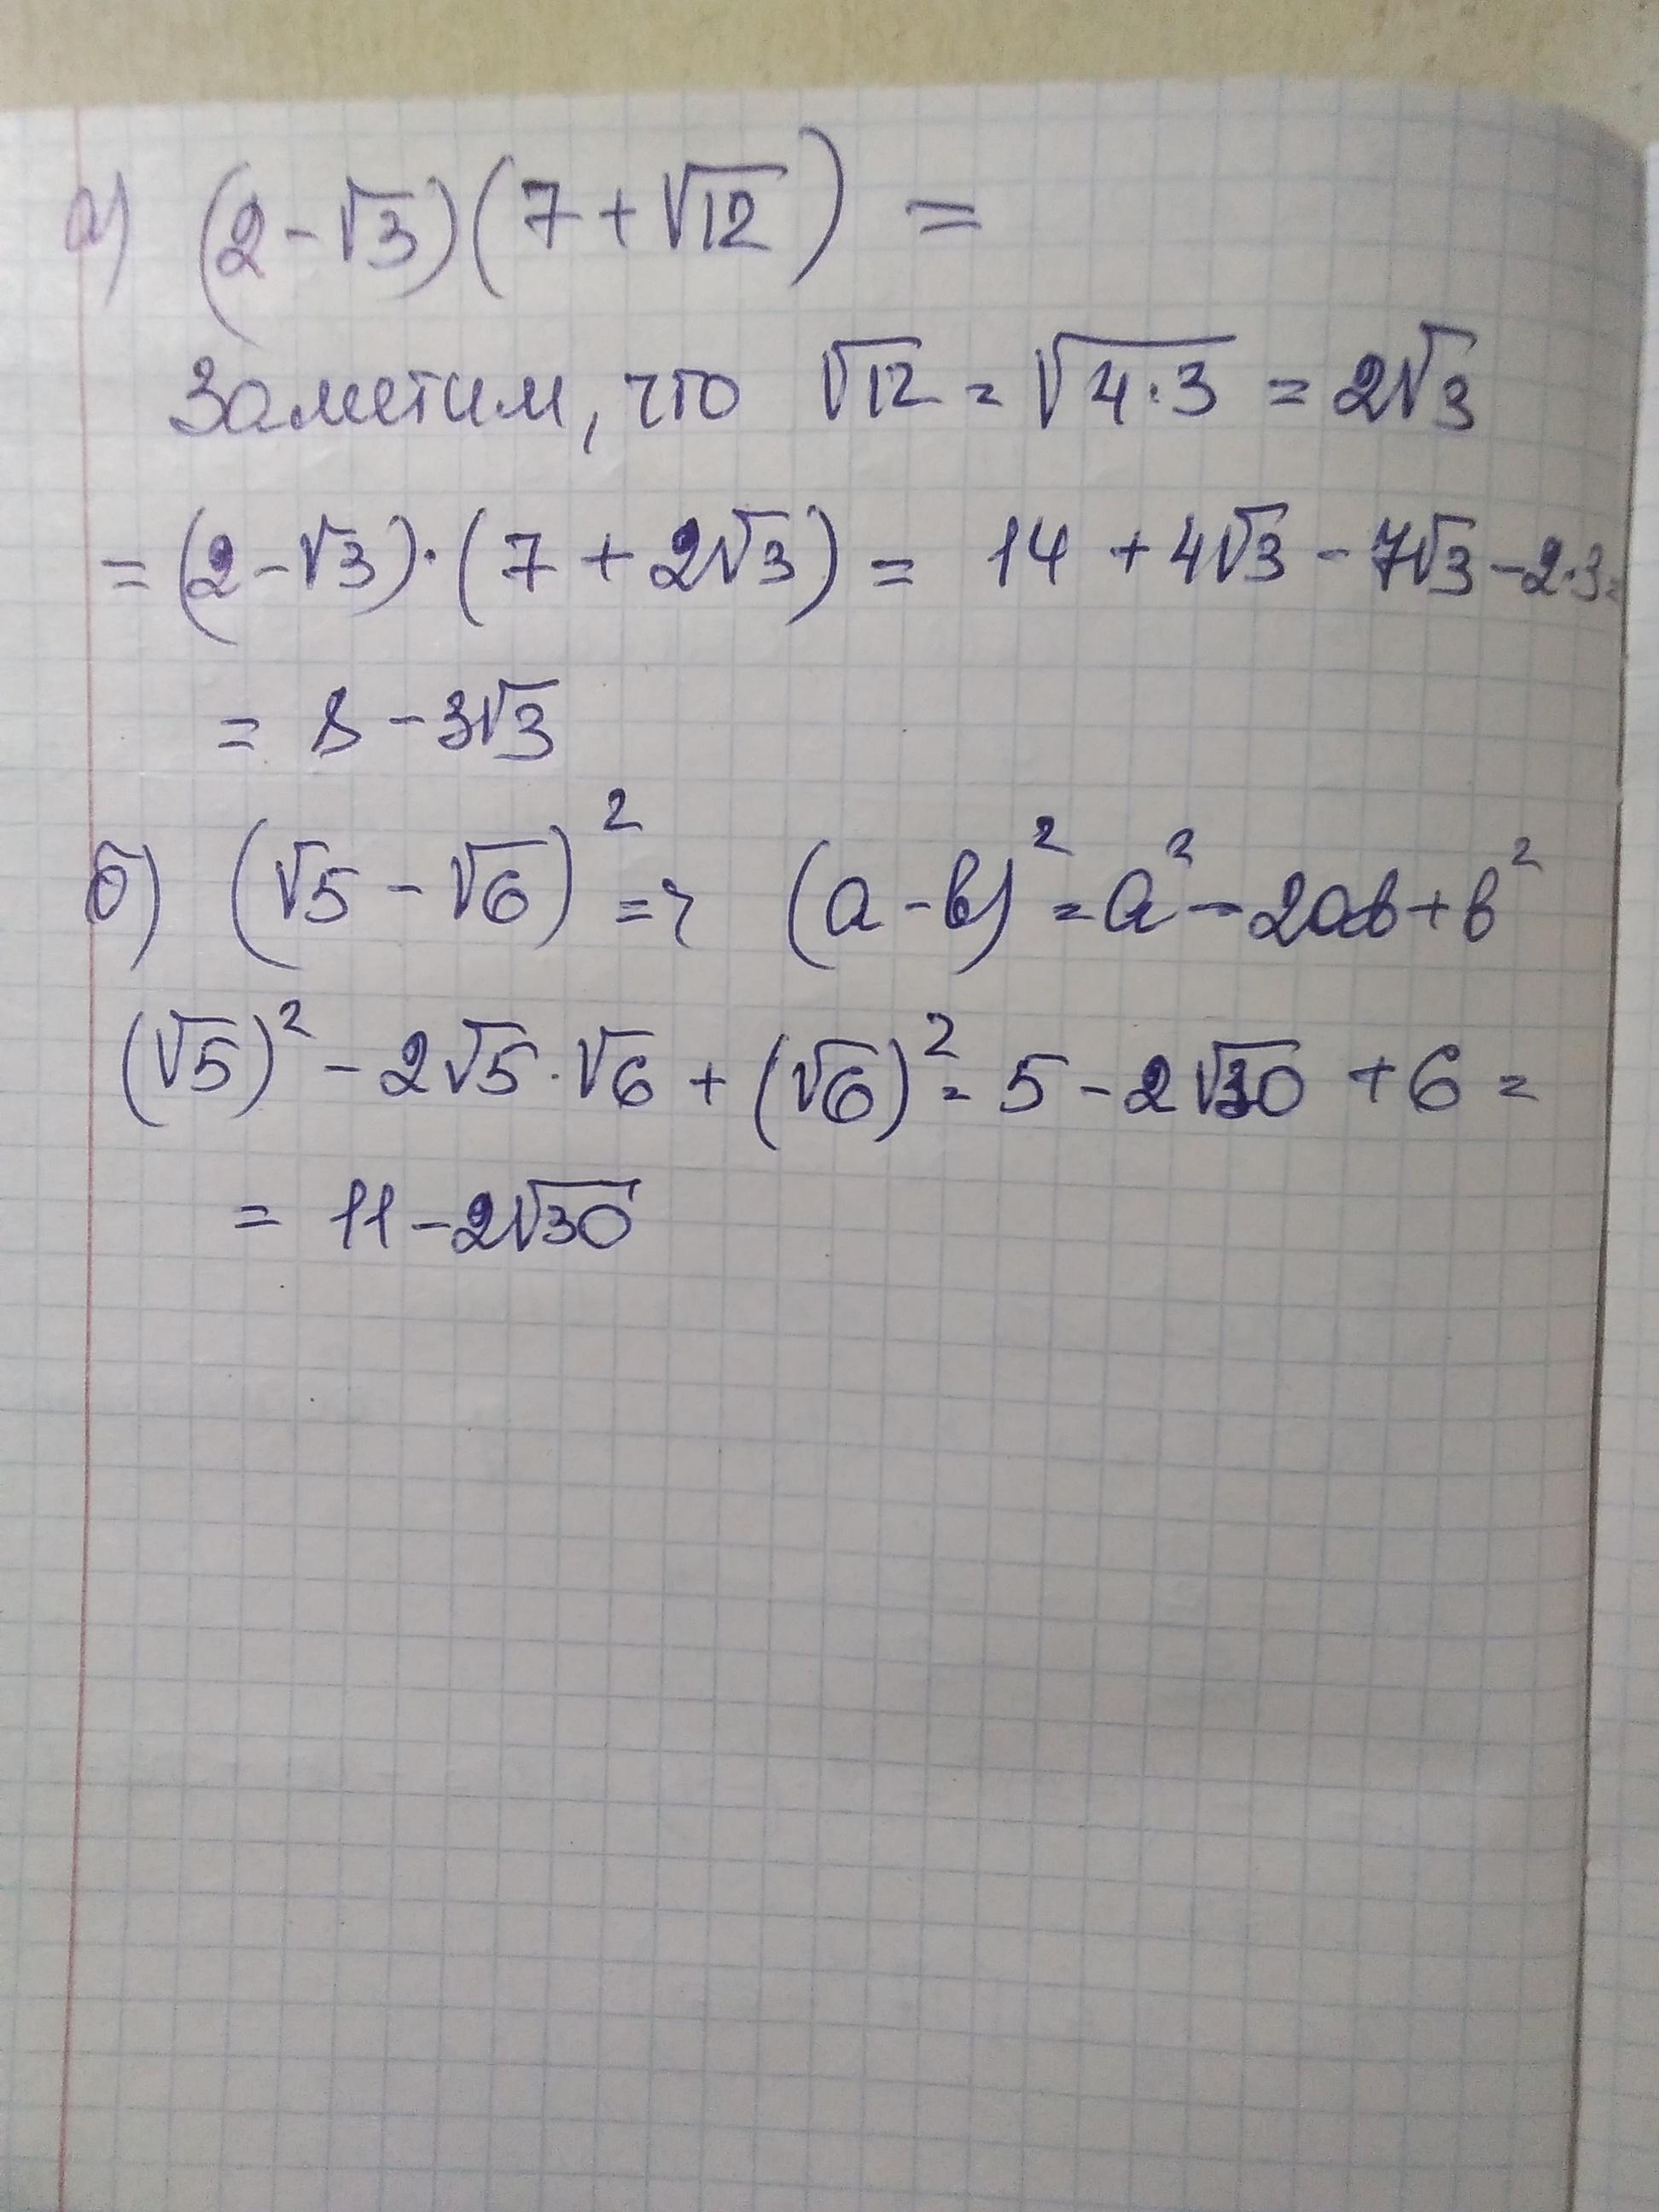 а) (2-√3)(7+√12) =
Заметим, что √12 = √4·3 = 2√3
= (2-√3)·(7 + 2√3) = 14 + 4√3 - 7√3 - 2·3 =
= 8 - 3√3
б) (√5 - √6)² = (a-b)² = a² - 2ab + b²
(√5)² - 2√5·√6 + (√6)² = 5 - 2√30 + 6 =
= 11 - 2√30